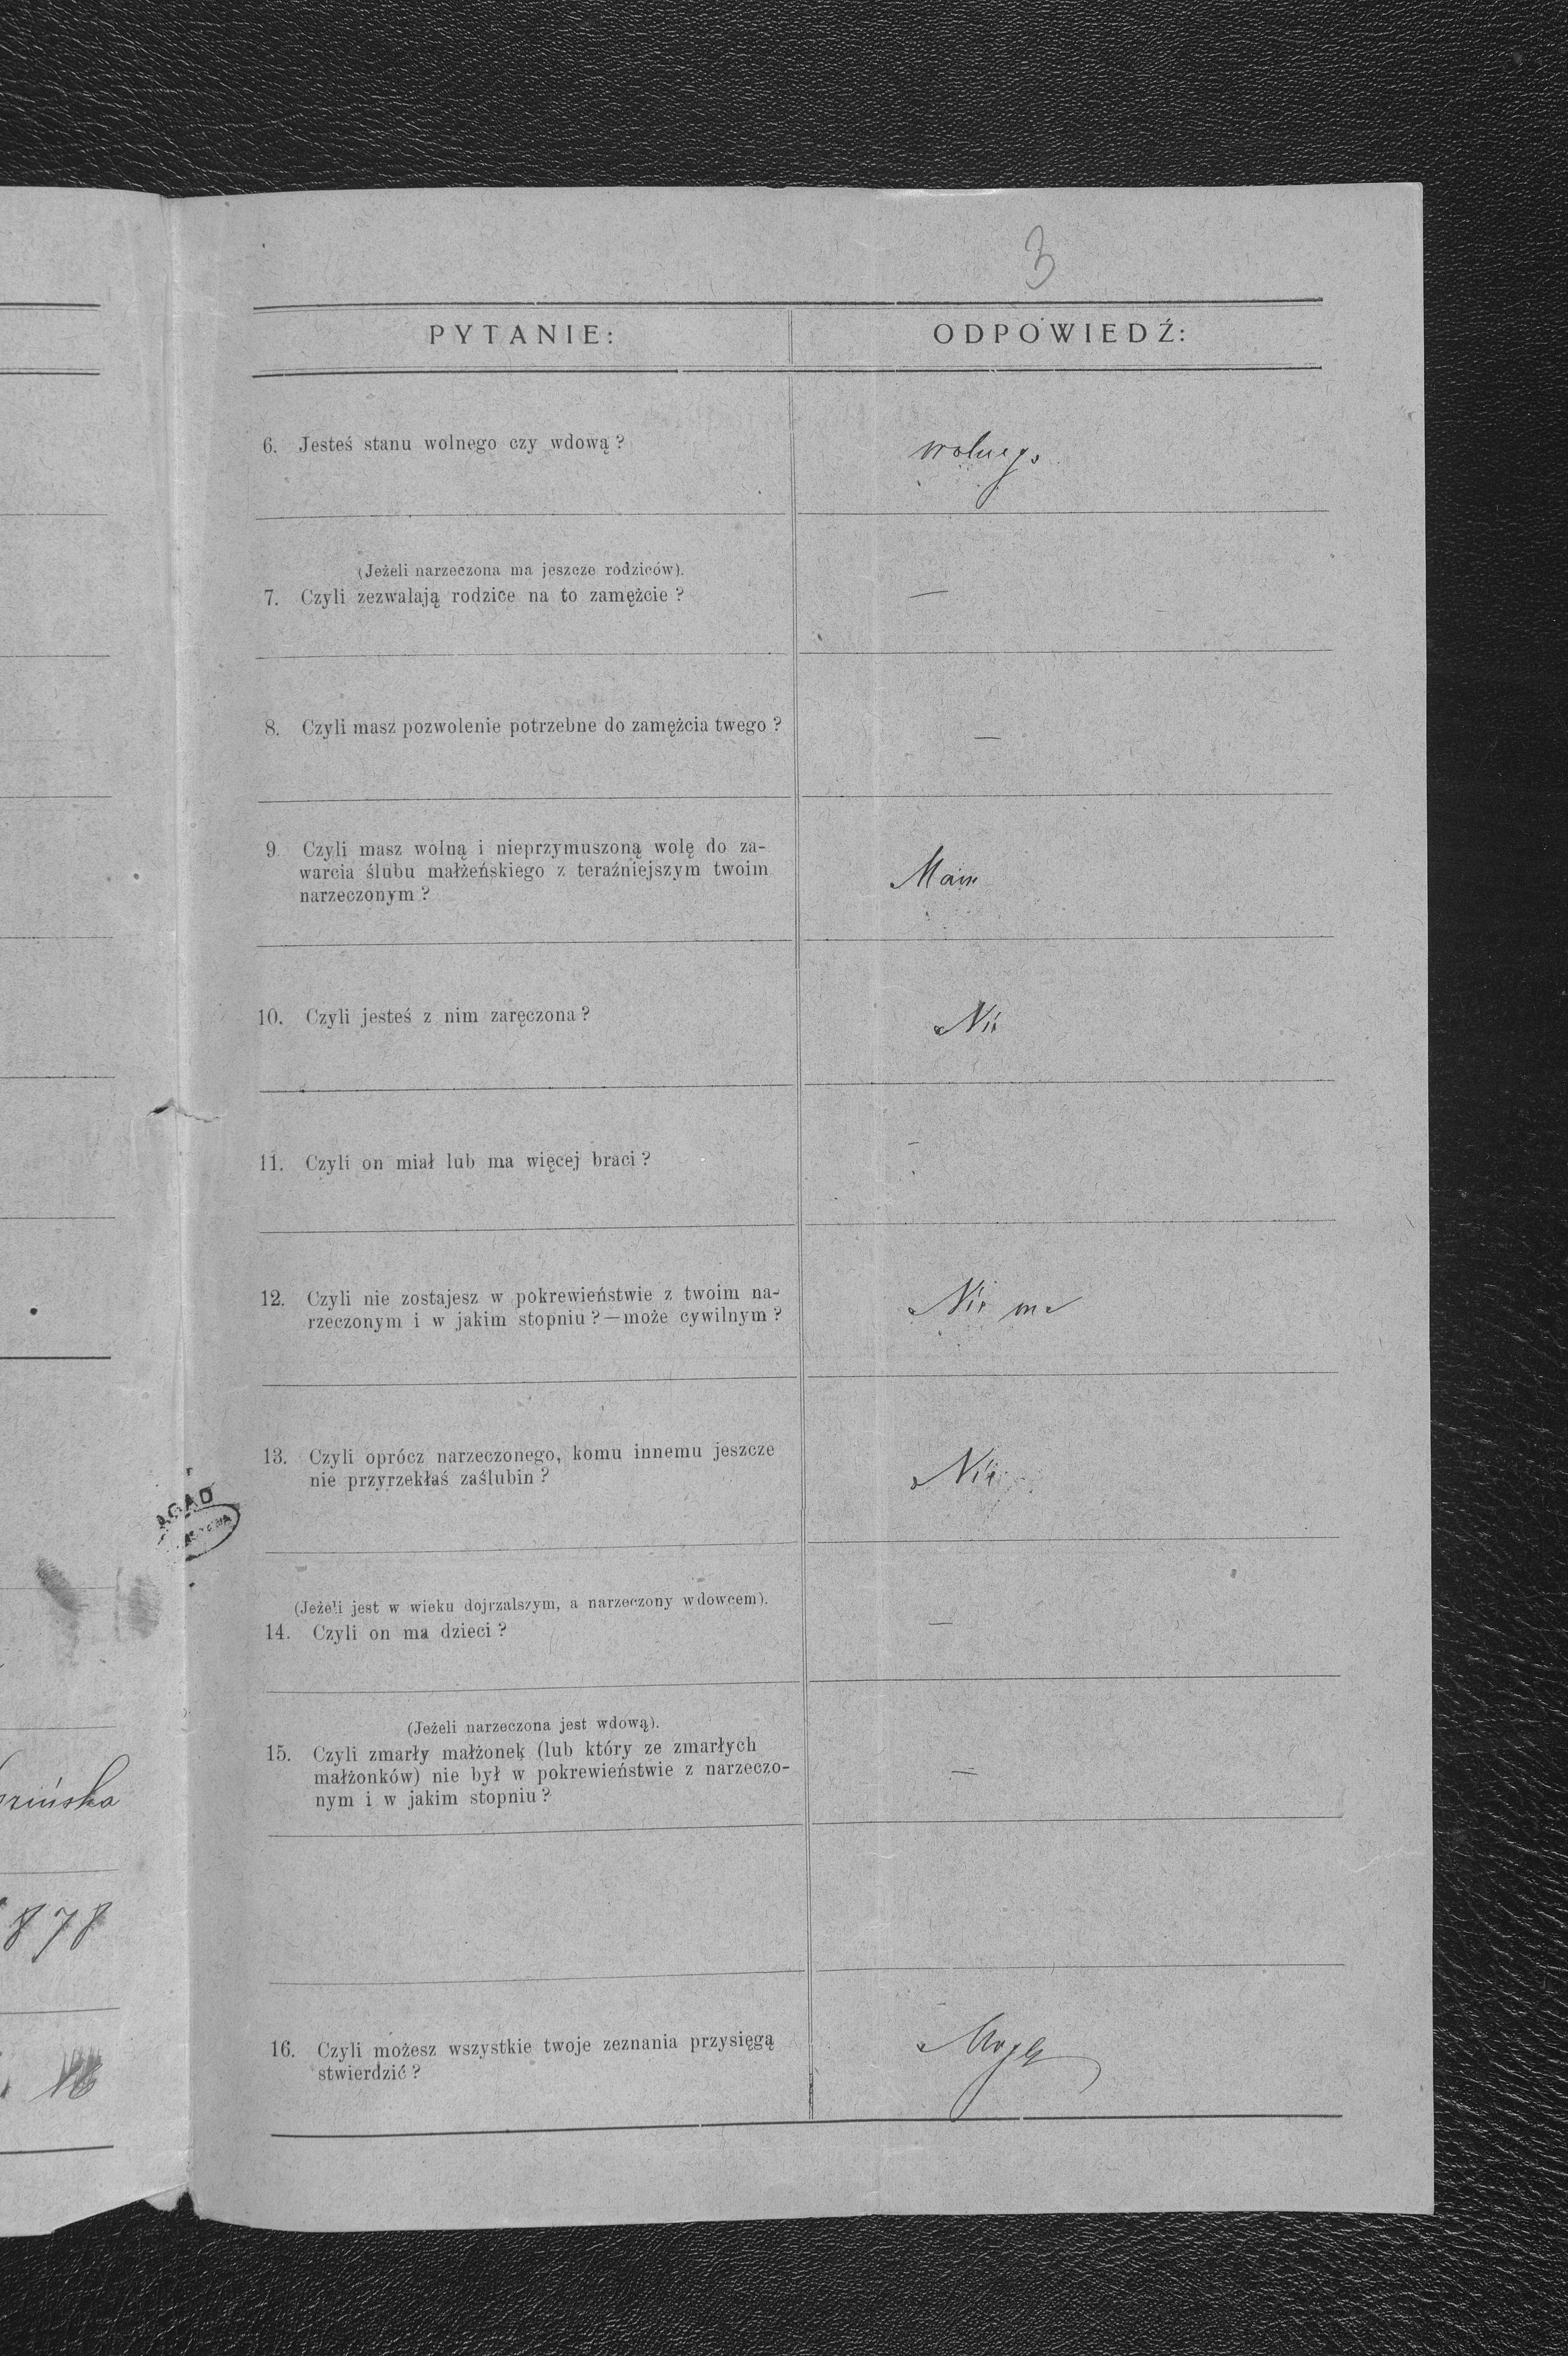 3
PYTANIE:
ODPOWIEDŹ:
6. Jesteś stanu wolnego czy wdową?
wolnego
(Jeżeli narzeczona ma jeszcze rodziców).
7. Czyli zezwalają rodzice na to zamężcie?
—
8. Czyli masz pozwolenie potrzebne do zamężcia twego?
—
9. Czyli masz wolną i nieprzymuszoną wolę do za-
warcia ślubu małżeńskiego z teraźniejszym twoim
narzeczonym?
Mam
10. Czyli jesteś z nim zaręczona?
Nie
11. Czyli on miał lub ma więcej braci?
—
12. Czyli nie zostajesz w pokrewieństwie z twoim na-
rzeczonym i w jakim stopniu?—może cywilnym?
Nie ma
13. Czyli oprócz narzeczonego, komu innemu jeszcze
nie przyrzekłaś zaślubin?
Nie
(Jeżeli jest w wieku dojrzalszym, a narzeczony wdowcem).
14. Czyli on ma dzieci?
—
(Jeżeli narzeczona jest wdową).
15. Czyli zmarły małżonek (lub który ze zmarłych
małżonków) nie był w pokrewieństwie z narzeczo-
nym i w jakim stopniu?
—
16. Czyli możesz wszystkie twoje zeznania przysięgą
stwierdzić?
Mogę
AGAD
zińska
878